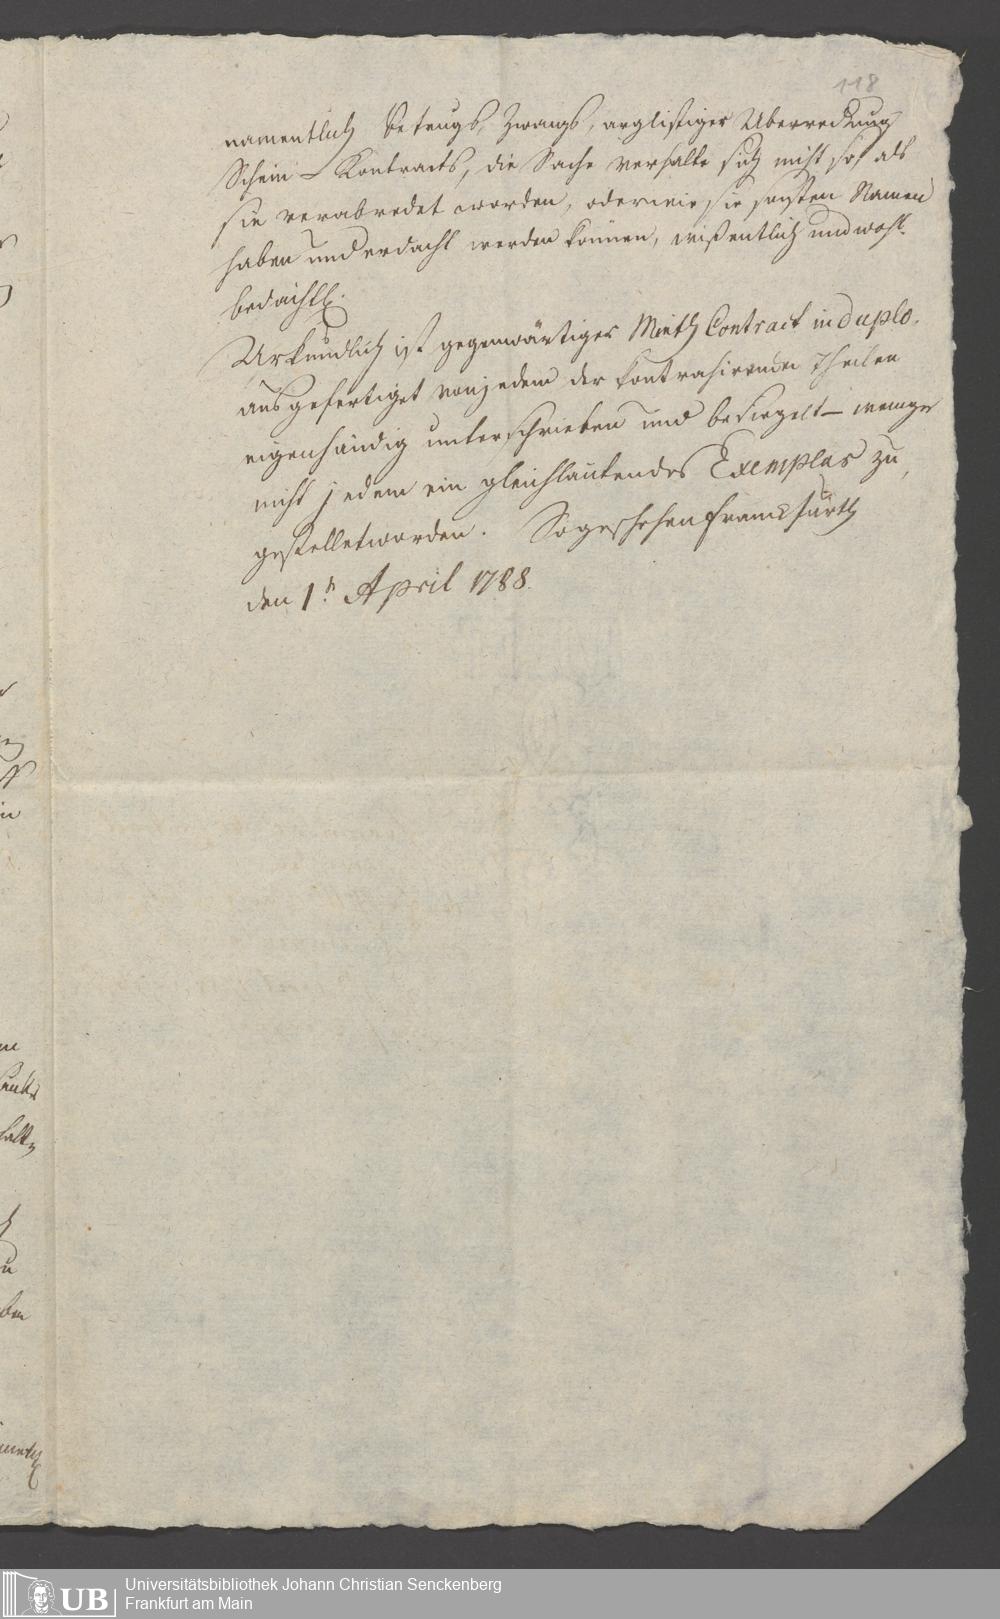 118
namentlich Betrugs, Zwangs, arglistiger Uberredung
Schein-Kontracts, die Sache verhalte sich nicht so als
sie verabredet worden, oder wie sie sonsten Namen
haben und erdacht werden können, wißentlich und wohl-
bedächtl.
Urkundlich ist gegenwärtiger Mieth Contract in duplo.
ausgefertiget von jedem der kontrahirenden Theilen
eigenhändig unterschrieben und besiegelt – weniger
nicht jedem ein gleichlautendes Exemplar zu
gestellet worden. So geschehen Franckfurth
den 1.n April 1788.
Universitätsbibliothek Johann Christian Senckenberg
Frankfurt am Main
UB